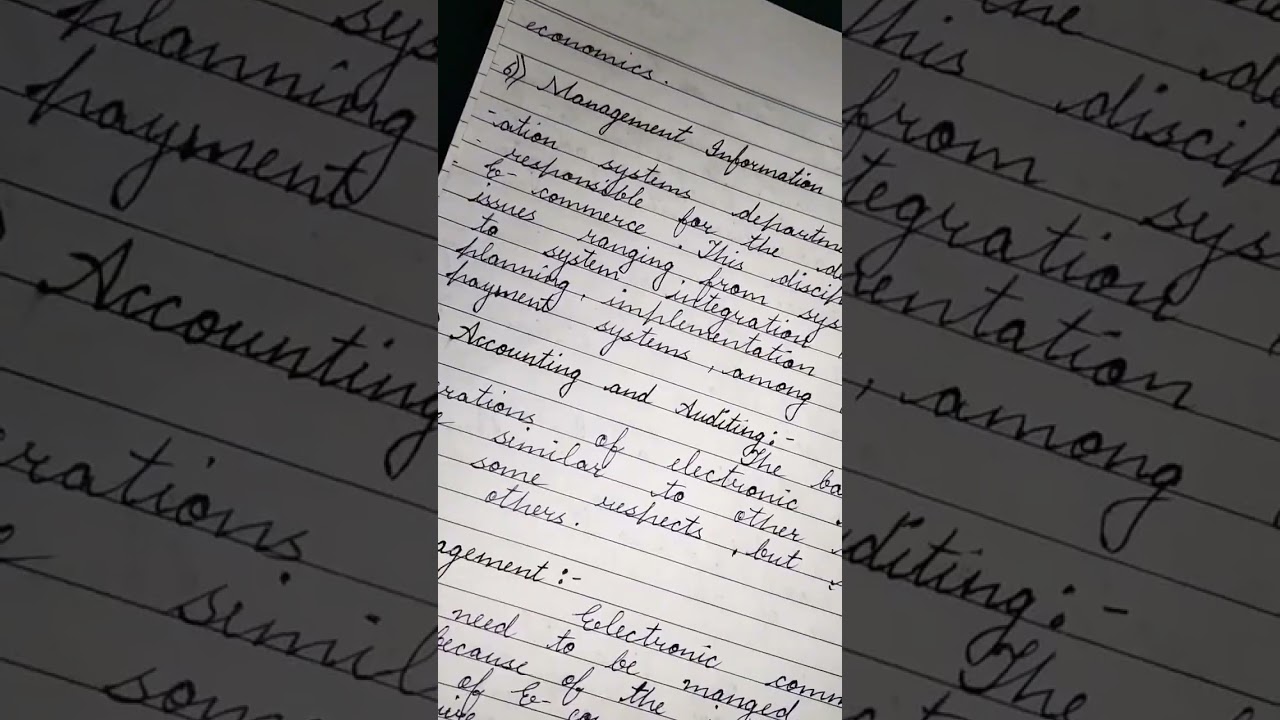 economics.
6) Management Information
-ation systems departme
- responsible for the de
- E-commerce. This discip
issues ranging from sys
to system integration
planning, implementation
payment systems, among
Accounting and Auditing:-
The ba
rations of electronic
similar to other
some respects, but
others.
agement :-
Electronic comm
need to be manged
because of the
of E-co